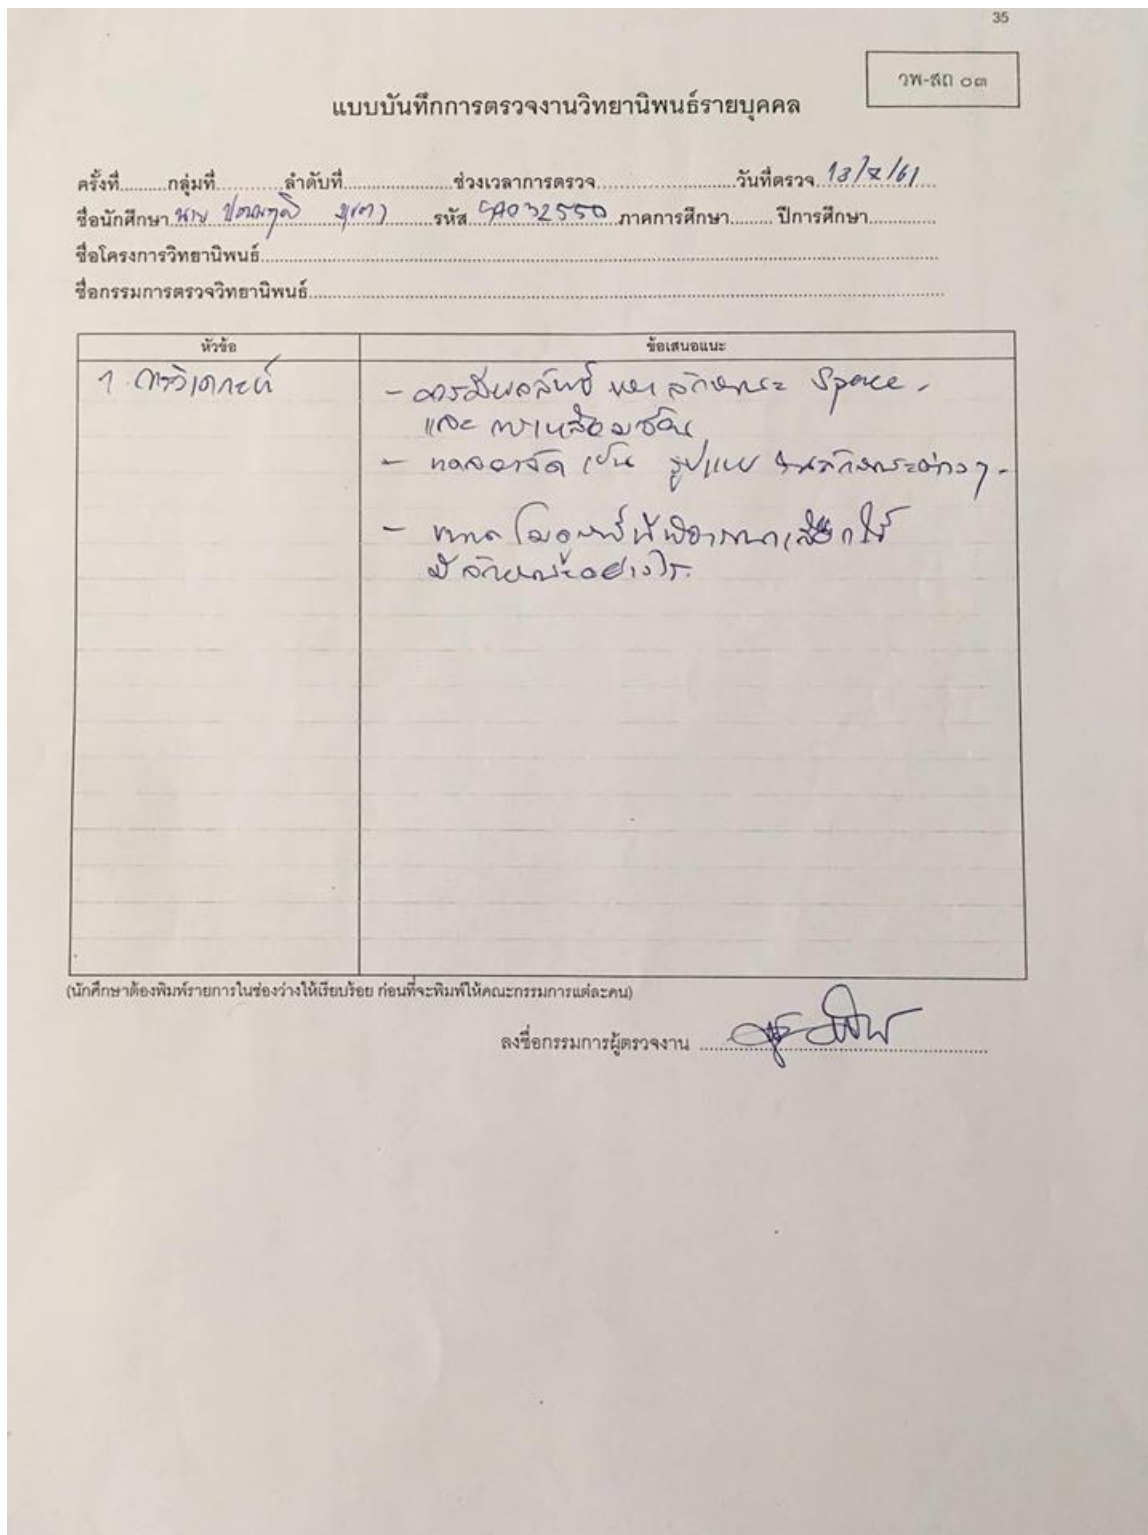 35
วพ-สถ ๐๓
แบบบันทึกการตรวจงานวิทยานิพนธ์รายบุคคล
ครั้งที่.........กลุ่มที่............ลำดับที่......................ช่วงเวลาการตรวจ............................วันที่ตรวจ
ชื่อนักศึกษา นาย รหัส ภาคการศึกษา......... ปีการศึกษา..............
ชื่อโครงการวิทยานิพนธ์..........................................................................................
ชื่อกรรมการตรวจวิทยานิพนธ์..........................................................................................
หัวข้อ ข้อเสนอแนะ
1. การวิเคราะห์
- ควรมีผลลัพธ์ ลักษณะ Space
และ
- ทดลองจัด เป็น รูปแบบ ลักษณะต่างๆ
- ขนาด
มีลักษณะอย่างไร
(นักศึกษาต้องพิมพ์รายการในช่องว่างให้เรียบร้อย ก่อนที่จะพิมพ์ให้คณะกรรมการแต่ละคน)
ลงชื่อกรรมการผู้ตรวจงาน